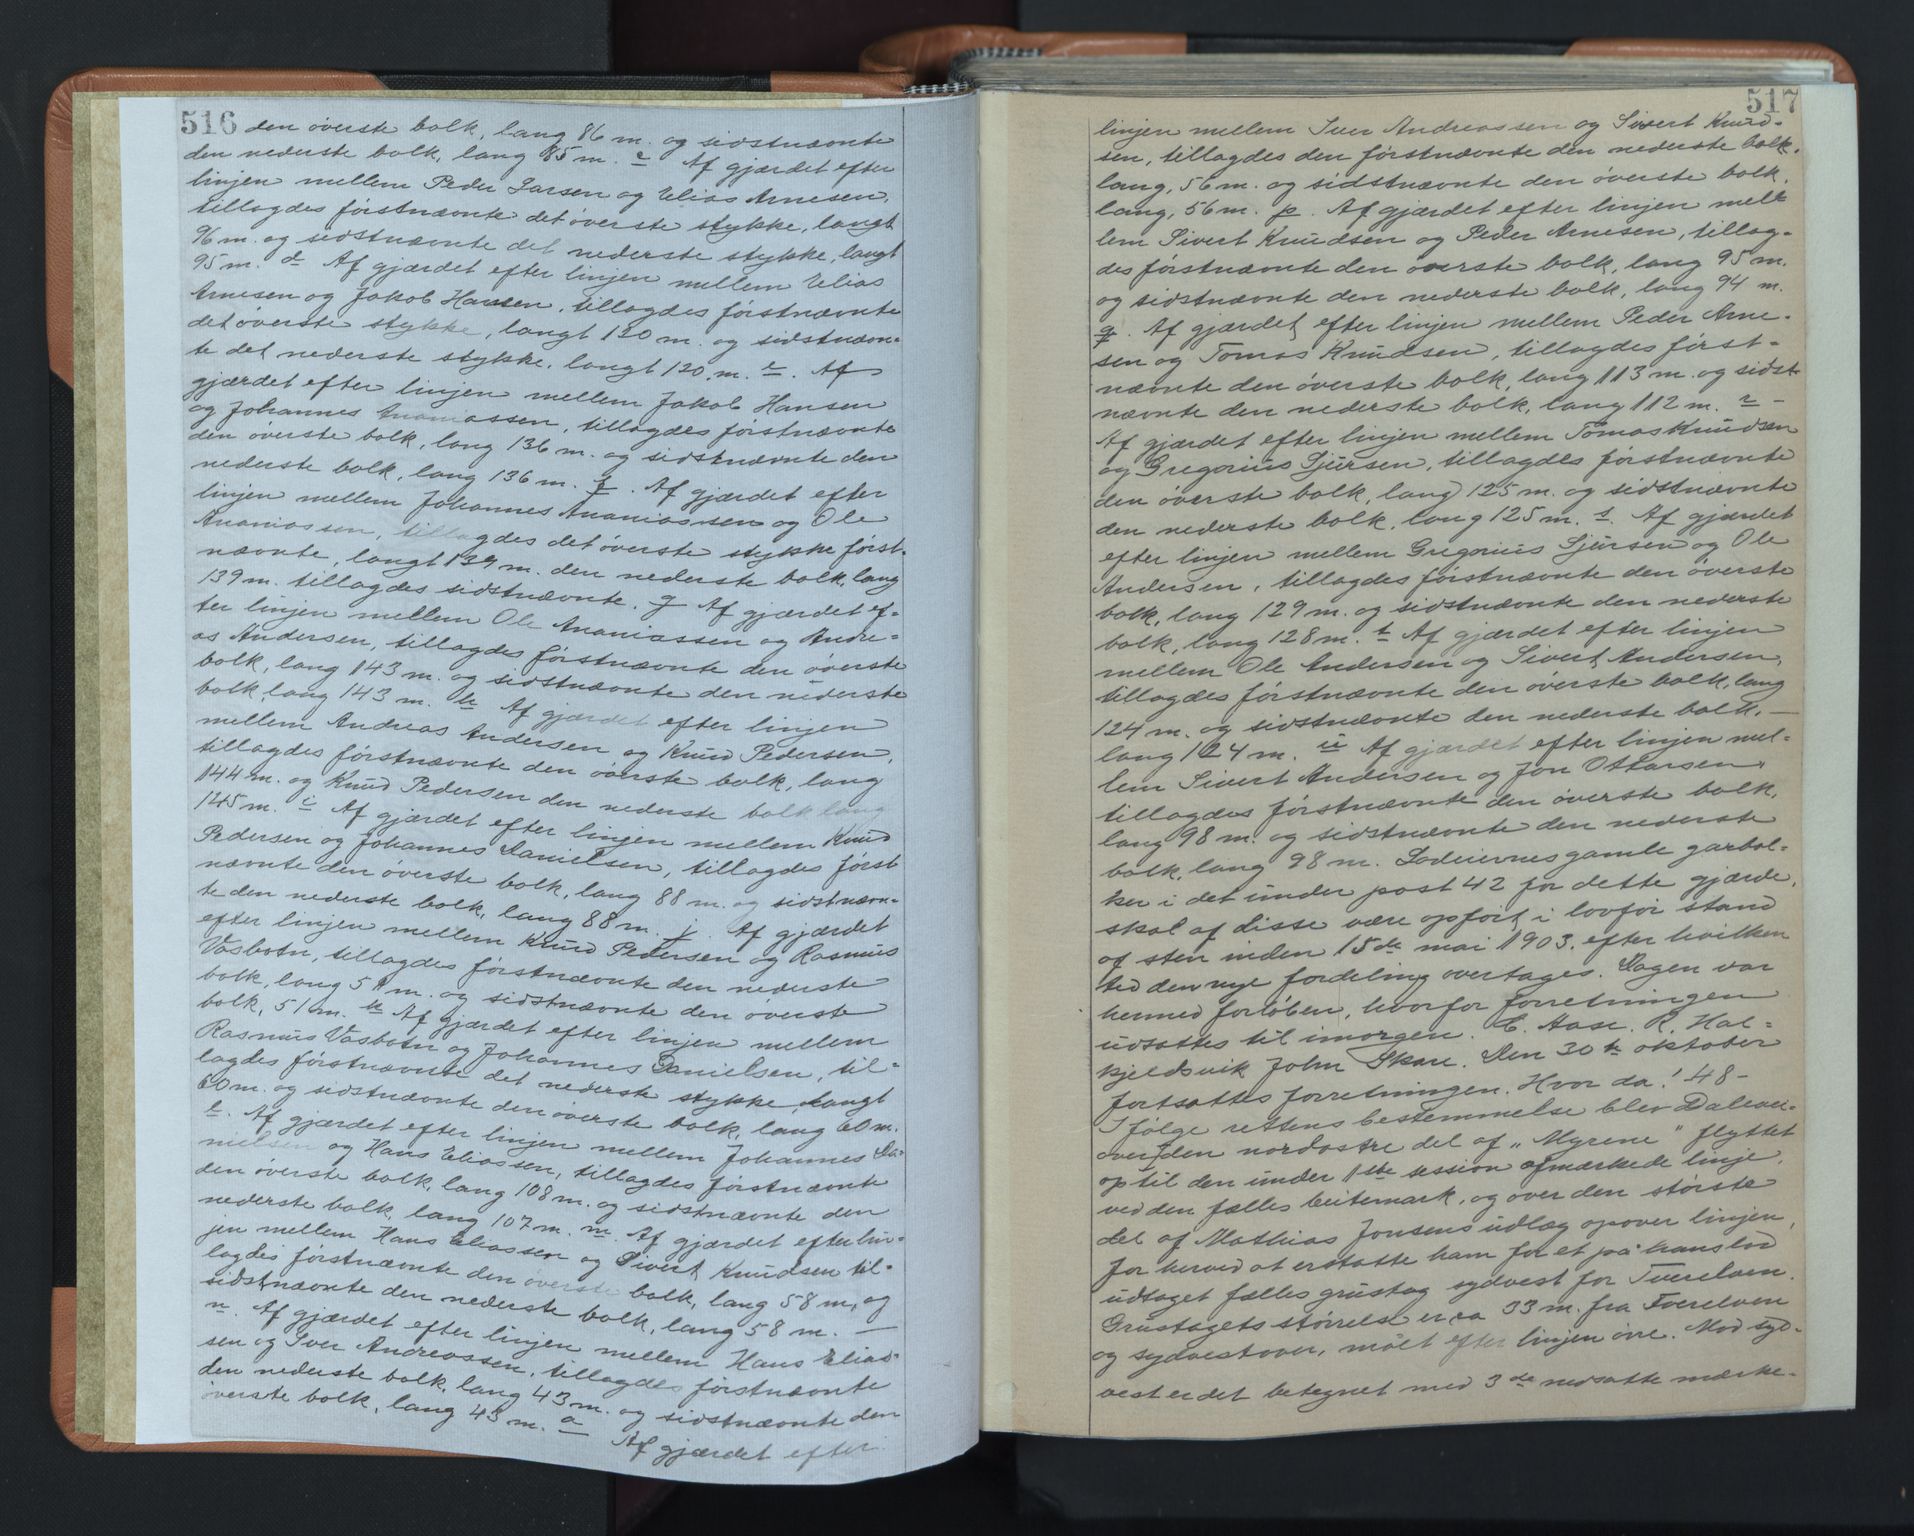 516
den øverste bolk, lang 86 m. og sidstnævnte
den nederste bolk, lang 85 m. c Af gjærdet efter
linjen mellem Peder Larsen og Elias Arnesen,
tillagdes førstnævnte det øverste stykke, langt
96 m. og sidstnævnte det nederste stykke, langt
95 m. d Af gjærdet efter linjen mellem Elias
Arnesen og Jakob Hansen, tillagdes førstnævnte
det øverste stykke, langt 120 m. og sidstnævn-
te det nederste stykke, langt 120 m. e. Af
gjærdet efter linjen mellem Jakob Hansen
og Johannes Ananiassen, tillagdes førstnævnte
den øverste bolk, lang 136 m. og sidstnævnte den
nederste bolk, lang 136 m. f. Af gjærdet efter
linjen mellem Johannes Ananiassen og Ole
Ananiassen, tillagdes det øverste stykke først-
nævnte, langt 139 m. den nederste bolk, lang
139 m. tillagdes sidstnævnte. g Af gjærdet ef-
ter linjen mellem Ole Ananiassen og Andre-
as Andersen, tillagdes førstnævnte den øverste
bolk, lang 143 m. og sidstnævnte den nederste
bolk, lang 143 m. h Af gjærdet efter linjen
mellem Andreas Andersen og Knud Pedersen,
tillagdes førstnævnte den øverste bolk, lang
144 m. og Knud Pedersen den nederste bolk lang
145 m. i Af gjærdet efter linjen mellem Knud
Pedersen og Johannes Danielsen, tillagdes først
nævnte den øverste bolk, lang 88 m. og sidstnævn-
te den nederste bolk, lang 88 m. j. Af gjærdet
efter linjen mellem Knud Pedersen og Rasmus
Vasbotn, tillagdes førstnævnte den nederste
bolk, lang 51 m. og sidstnævnte den øverste
bolk, 51 m. k Af gjærdet efter linjen mellem
Rasmus Vasbotn og Johannes Danielsen, til-
lagdes førstnævnte det nederste stykke, langt
60 m. og sidstnævnte den øverste bolk, lang 60 m.
l. Af gjærdet efter linjen mellem Johannes Da-
nielsen og Hans Eliassen, tillagdes førstnævnte
den øverste bolk, lang 108 m. og sidstnævnte den
nederste bolk, lang 107 m. m. Af gjærdet efter lin-
jen mellem Hans Eliassen og Sivert Knudsen til-
lagdes førstnævnte den øverste bolk, lang 58 m, og
sidstnævnte den nederste bolk, lang 58 m. —
n. Af gjærdet efter linjen mellem Hans Elias-
sen og Iver Andreassen, tillagdes førstnævnte
den nederste bolk, lang 43 m. og sidstnævnte den
øverste bolk, lang 43 m. o Af gjærdet efter
517
linjen mellem Iver Andreassen og Sivert Knud-
sen, tillagdes den førstnævnte den nederste bolk,
lang, 56 m. og sidstnævnte den øverste bolk,
lang, 56 m. p. Af gjærdet efter linjen mel-
lem Sivert Knudsen og Peder Arnesen, tillag-
des førstnævnte den øverste bolk, lang 95 m.
og sidstnævnte den nederste bolk, lang 94 m.
q. Af gjærdet efter linjen mellem Peder Arne-
sen og Tomas Knudsen, tillagdes først-
nævnte den øverste bolk, lang 113 m. og sidst-
nævnte den nederste bolk, lang 112 m. r —
Af gjærdet efter linjen mellem Tomas Knudsen
og Gregorius Sjursen, tillagdes førstnævnte
den øverste bolk, lang 125 m. og sidstnævnte
den nederste bolk, lang 125 m. s. Af gjærdet
efter linjen mellem Gregorius Sjursen og Ole
Andersen, tillagdes førstnævnte den øverste
bolk, lang 129 m. og sidstnævnte den nederste
bolk, lang 128 m. t Af gjærdet efter linjen
mellem Ole Andersen og Sivert Andersen,
tillagdes førstnævnte den øverste bolk, lang
124 m. og sidstnævnte den nederste bolk, —
lang 124 m. u Af gjærdet efter linjen mel-
lem Sivert Andersen og Jon Ottarsen,
tillagdes førstnævnte den øverste bolk,
lang 98 m. og sidstnævnte den nederste
bolk, lang 98 m. Lodeiernes gamle garbol-
ker i det under post 42 for dette gjærde,
skal af disse være opført i lovfør stand
af sten inden 15de mai 1903. efter hvilken
tid den nye fordeling overtages. Dagen var
hermed forløben, hvorfor forretningen
udsattes til imorgen. E. Aase. R. Hal-
kjeldsvik John Skare. Den 30te oktober
fortsattes forretningen. Hvor da! 48 —
Ifølge rettens bestemmelse blev Dalevei-
over den nordøstre del af „Myrene" flyttet
op til den under 1ste session afmærkede linje,
ved den fælles beitemark, og over den største
del af Mathias Jonsens udlæg opover linjen,
for herved at erstatte ham for et på hans lod
udtaget fælles grustag sydvest for Tverelven.
Grustagets størrelse er ca 33 m. fra Tverelven
og sydvestover, målt efter linjen øvre. Mod syd-
vest er det betegnet med 3de nedsatte mærke-